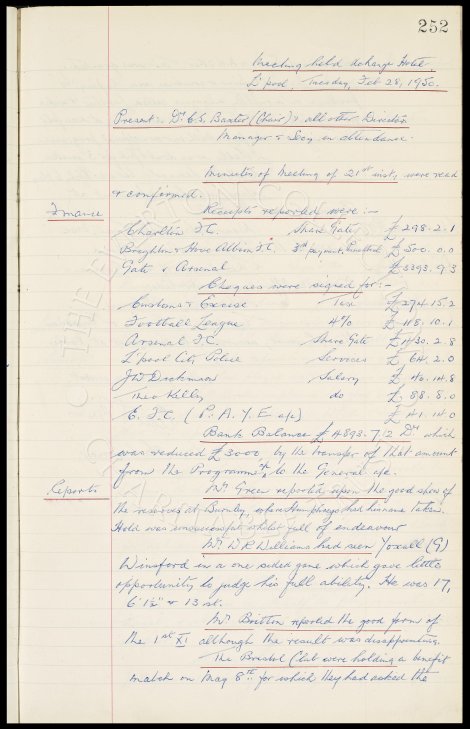 252
Meeting held Exchange Hotel
L'pool, Tuesday, Feb 28, 1950.
Present:- Dr. C.S. Baxter (Chair) & all other Directors
Manager & Secy in attendance.
Minutes of Meeting of 21st inst, were read
& confirmed.
Finance
Receipts reported were:-
Charlton F.C. Share Gate £298.2.1
Brighton & Hove Albion F.C. 3rd payment, £500.0.0
Gate v Arsenal £3393.9.3
Cheques were signed for:-
Customs & Excise Tax £274.15.2
Football League 4% £118.10.1
Arsenal F.C. Share Gate £1430.2.8
L'pool City Police Services £64.2.0
J.W. Dickinson Salary £40.14.8
Theo Kelly do £88.8.0
E.F.C. (P.A.Y.E a/c) £41.14.0
Bank Balance £4893.7.2 Dr which
was reduced £3000, by the transfer of that amount
from the Programme a/c to the General a/c.
Reports
Mr Green reported upon the good show of
the reserves at Burnley, where Humphreys had his nose taken.
Hold was unsuccessful whilst full of endeavour
Mr W.R. Williams had seen Yoxall (G)
Winsford in a one sided game which gave little
opportunity to judge his full ability. He was 17,
6' 1½" & 13 st.
Mr Britton reported the good form of
the 1st XI although the result was disappointing.
The Bristol Club were holding a benefit
match on May 8th for which they had asked the